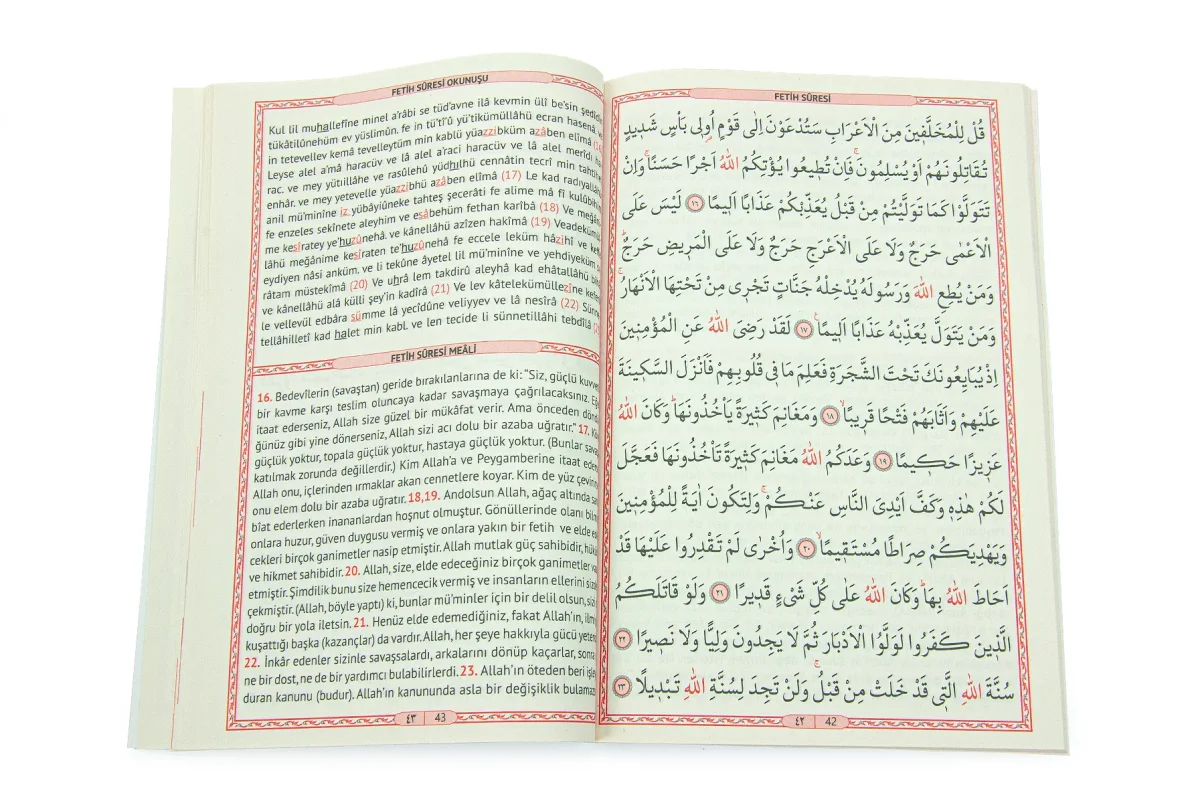 FETİH SÛRESİ OKUNUŞU
Kul lil muhallefîne minel a'râbi se tüd'avne ilâ kavmin ülî be'sin şedîdin
tükâtilûnehüm ev yüslimûn. fe in tü'tî'û yü'tikümüllâhü ecran hasenâ
in tetevellev kemâ tevelleytüm min kablü yüazzibküm azâben elîmâ
Leyse alel a'mâ haracüv ve lâ alel a'raci haracüv ve lâ alel merîdı
rac. ve mey yütııllâhe ve rasûlehü yüdhılhü cennâtin tecrî min tahtihe
enhâr. ve mey yetevelle yüazzibhü azâben elîmâ (17) Le kad radıyallâhü
anil mü'minîne iz yübâyiûneke tahteş şecerâti fe alime mâ fî kulûbihim
fe enzeles sekînete aleyhim ve esâbehüm fethan karîbâ (18) Ve meğâni
me kesîratey ye'huzûnehâ. ve kânellâhü azîzen hakîmâ (19) Veadekümül
lâhü meğânime kesîraten te'huzûnehâ fe eccele leküm hâzihî ve keffe
eydiyen nâsi anküm. ve li tekûne âyetel lil mü'minîne ve yehdiyeküm sı
râtam müstekîmâ (20) Ve uhrâ lem takdirû aleyhâ kad ehâtallâhü bihâ
ve kânellâhü alâ külli şey'in kadîrâ (21) Ve lev kâtelekümüllezîne kefe
le vellevül edbâra sümme lâ yecîdûne veliyyev ve lâ nesîrâ (22) Sünne
tellâhilletî kad halet min kabl. ve len tecide li sünnetillâhi tebdîlâ
FETİH SÛRESİ MEÂLİ
16. Bedevîlerin (savaştan) geride bırakılanlarına de ki: "Siz, güçlü kuvve
bir kavme karşı teslim oluncaya kadar savaşmaya çağrılacaksınız. Eğe
itaat ederseniz, Allah size güzel bir mükâfat verir. Ama önceden dönd
ğünüz gibi yine dönerseniz, Allah sizi acı dolu bir azaba uğratır." 17. Kö
güçlük yoktur, topala güçlük yoktur, hastaya güçlük yoktur. (Bunlar sava
katılmak zorunda değillerdir.) Kim Allah'a ve Peygamberine itaat eder
Allah onu, içlerinden ırmaklar akan cennetlere koyar. Kim de yüz çevirir
onu elem dolu bir azaba uğratır. 18,19. Andolsun Allah, ağaç altında sa
bîat ederlerken inananlardan hoşnut olmuştur. Gönüllerinde olanı bilm
onlara huzur, güven duygusu vermiş ve onlara yakın bir fetih ve elde ed
cekleri birçok ganimetler nasip etmiştir. Allah mutlak güç sahibidir, hük
ve hikmet sahibidir. 20. Allah, size, elde edeceğiniz birçok ganimetler va
etmiştir. Şimdilik bunu size hemencecik vermiş ve insanların ellerini size
çekmiştir. (Allah, böyle yaptı) ki, bunlar mü'minler için bir delil olsun, sizi
doğru bir yola iletsin. 21. Henüz elde edemediğiniz, fakat Allah'ın, ilmi
kuşattığı başka (kazançlar) da vardır. Allah, her şeye hakkıyla gücü yeten
22. İnkâr edenler sizinle savaşsalardı, arkalarını dönüp kaçarlar, sonra
ne bir dost, ne de bir yardımcı bulabilirlerdi. 23. Allah'ın öteden beri işle
duran kanunu (budur). Allah'ın kanununda asla bir değişiklik bulamaz
٤٣ 43
FETİH SÛRESİ
قُلْ لِلْمُخَلَّفٖينَ مِنَ الْاَعْرَابِ سَتُدْعَوْنَ اِلٰى قَوْمٍ اُو۬لٖى بَأْسٍ شَدٖيدٍ
تُقَاتِلُونَهُمْ اَوْ يُسْلِمُونَۚ فَاِنْ تُطٖيعُوا يُؤْتِكُمُ اللّٰهُ اَجْرًا حَسَنًاۚ وَاِنْ
تَتَوَلَّوْا كَمَا تَوَلَّيْتُمْ مِنْ قَبْلُ يُعَذِّبْكُمْ عَذَابًا اَلٖيمًا ١٦ لَيْسَ عَلَى
الْاَعْمٰى حَرَجٌ وَلَا عَلَى الْاَعْرَجِ حَرَجٌ وَلَا عَلَى الْمَرٖيضِ حَرَجٌۜ
وَمَنْ يُطِعِ اللّٰهَ وَرَسُولَهُ يُدْخِلْهُ جَنَّاتٍ تَجْرٖى مِنْ تَحْتِهَا الْاَنْهَارُۚ
وَمَنْ يَتَوَلَّ يُعَذِّبْهُ عَذَابًا اَلٖيمًاۚ ١٧ لَقَدْ رَضِىَ اللّٰهُ عَنِ الْمُؤْمِنٖينَ
اِذْ يُبَايِعُونَكَ تَحْتَ الشَّجَرَةِ فَعَلِمَ مَا فٖى قُلُوبِهِمْ فَاَنْزَلَ السَّكٖينَةَ
عَلَيْهِمْ وَاَثَابَهُمْ فَتْحًا قَرٖيبًاۙ ١٨ وَمَغَانِمَ كَثٖيرَةً يَأْخُذُونَهَاۜ وَكَانَ اللّٰهُ
عَزٖيزًا حَكٖيمًا ١٩ وَعَدَكُمُ اللّٰهُ مَغَانِمَ كَثٖيرَةً تَأْخُذُونَهَا فَعَجَّلَ
لَكُمْ هٰذِهٖ وَكَفَّ اَيْدِىَ النَّاسِ عَنْكُمْۚ وَلِتَكُونَ اٰيَةً لِلْمُؤْمِنٖينَ
وَيَهْدِيَكُمْ صِرَاطًا مُسْتَقٖيمًاۙ ٢٠ وَاُخْرٰى لَمْ تَقْدِرُوا عَلَيْهَا قَدْ
اَحَاطَ اللّٰهُ بِهَاۜ وَكَانَ اللّٰهُ عَلٰى كُلِّ شَىْءٍ قَدٖيرًا ٢١ وَلَوْ قَاتَلَكُمُ
الَّذٖينَ كَفَرُوا لَوَلَّوُا الْاَدْبَارَ ثُمَّ لَا يَجِدُونَ وَلِيًّا وَلَا نَصٖيرًا ٢٢
سُنَّةَ اللّٰهِ الَّتٖى قَدْ خَلَتْ مِنْ قَبْلُۚ وَلَنْ تَجِدَ لِسُنَّةِ اللّٰهِ تَبْدٖيلًا ٢٣
٤٢ 42